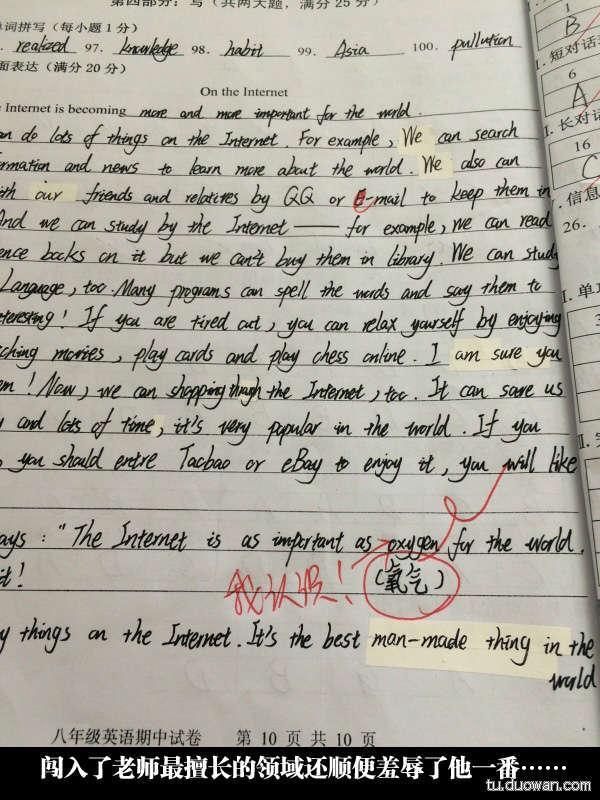 第四部分：写（共两大题，满分25分）
单词拼写（每小题1分）
realized 97. knowledge 98. habit 99. Asia 100. pollution
面表达（满分20分）
On the Internet
e Internet is becoming more and more important for the world.
an do lots of things on the Internet. For example, We can search
ormation and news to learn more about the world. We also can
ith our friends and relatives by QQ or e-mail to keep them in
And we can study by the Internet —— for example, we can read
ence books on it but we can't buy them in library. We can study
Language, too. Many programs can spell the words and say them to
nteresting! If you are tired out, you can relax yourself by enjoying
tching movies, play cards and play chess online. I am sure you
em! Now, we can shopping through the Internet, too. It can save us
y and lots of time, it's very popular in the world. If you
, you should entre Taobao or eBay to enjoy it, you will like
ays: "The Internet is as important as oxygen for the world.
it!
我认识！
（氧气）
y things on the Internet. It's the best man-made thing in the
world
八年级英语期中试卷 第 10 页 共 10 页
1
B
I. 短对话
6
A
I. 长对话
16
C
信息
26.
I. 单项
3
闯入了老师最擅长的领域还顺便羞辱了他一番……
tu.duowan.com